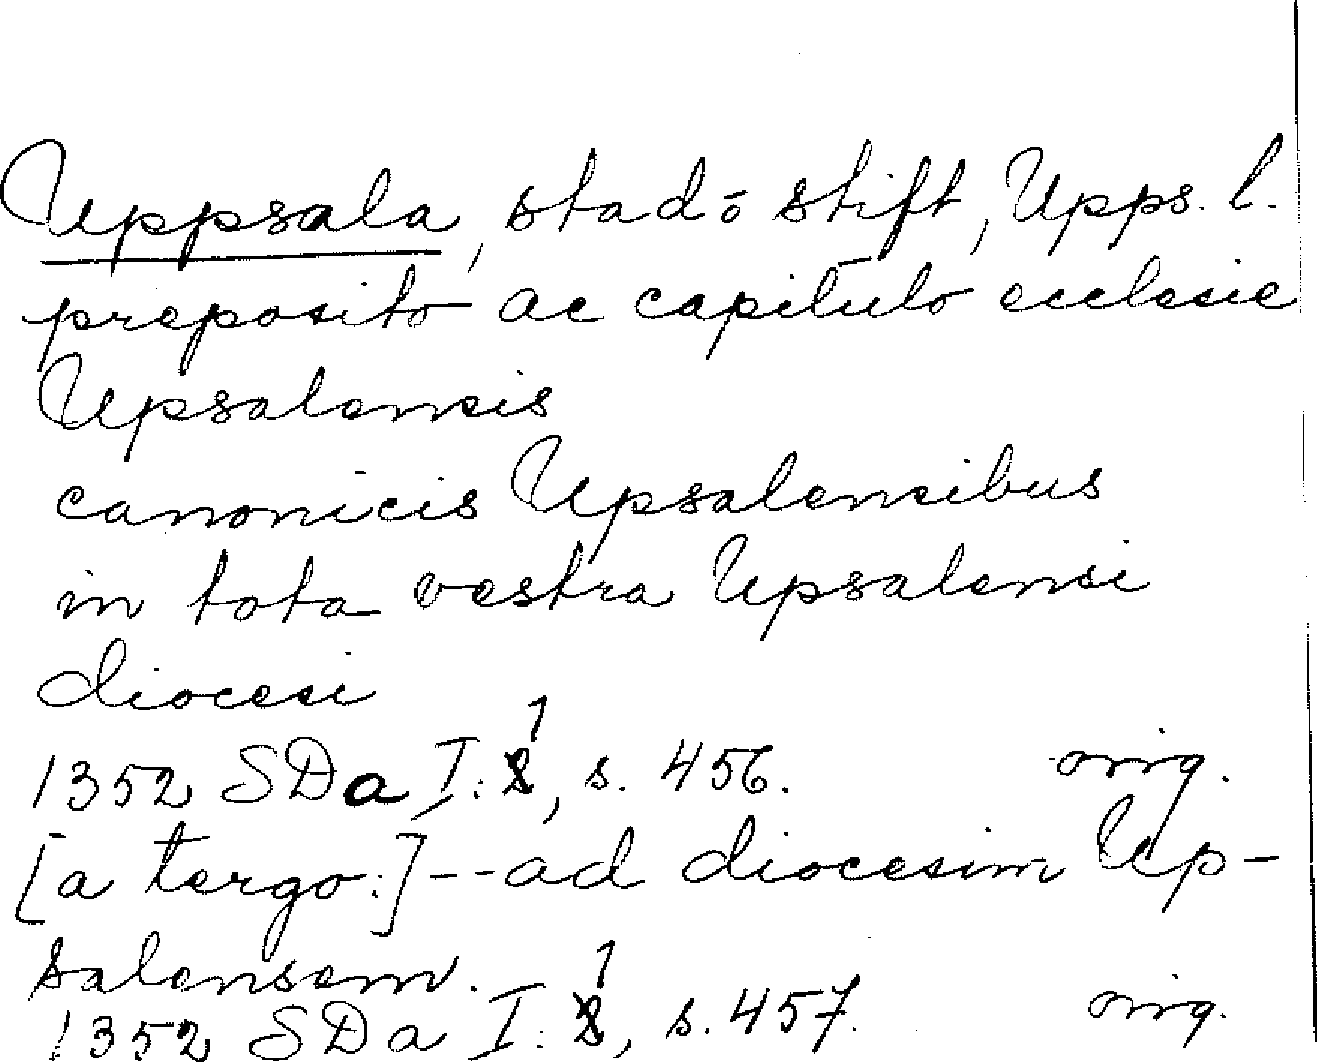 Uppsala, stad o stift, Upps. l.
preposito ac capitulo ecclesie
Upsalensis
canonicis Upsalensibus
in tota vestra Upsalensi
diocesi
1352 SDa I:1, s. 456. orig.
[a tergo:] -- ad diocesim Up-
salensem.
1352 SDa I:1, s. 457. orig.